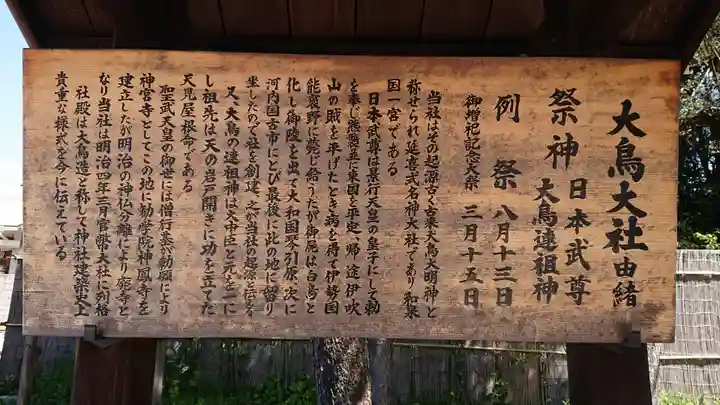 大鳥大社由緒
祭神 日本武尊
大鳥連祖神
例祭 八月十三日
御増祀記念大祭 三月十五日
当社はその起源古く古来大鳥大明神と
称せられ延喜式名神大社であり和泉
国一宮である
日本武尊は景行天皇の皇子にして勅
を奉じ熊襲並に東国を平定し帰途伊吹
山の賊を平げたとき病を得て伊勢国
能褒野に薨じ給うたが御屍は白鳥と
化し御陵を出て大和国琴引原、次に
河内国古市にとび最後に此の地に留り
坐したので社を創建、之が当社の起源と伝える
又、大鳥の連祖神は大中臣と元を一に
し祖先は天の岩戸開きに功を立てた
天児屋根命である
聖武天皇の御世には僧行基が勅願により
神宮寺としてこの地に勧学院神鳳寺を
建立したが明治の神仏分離により廃寺と
なり当社は明治四年三月官幣大社に列格
社殿は大鳥造と称して神社建築史上
貴重な様式を今に伝えている